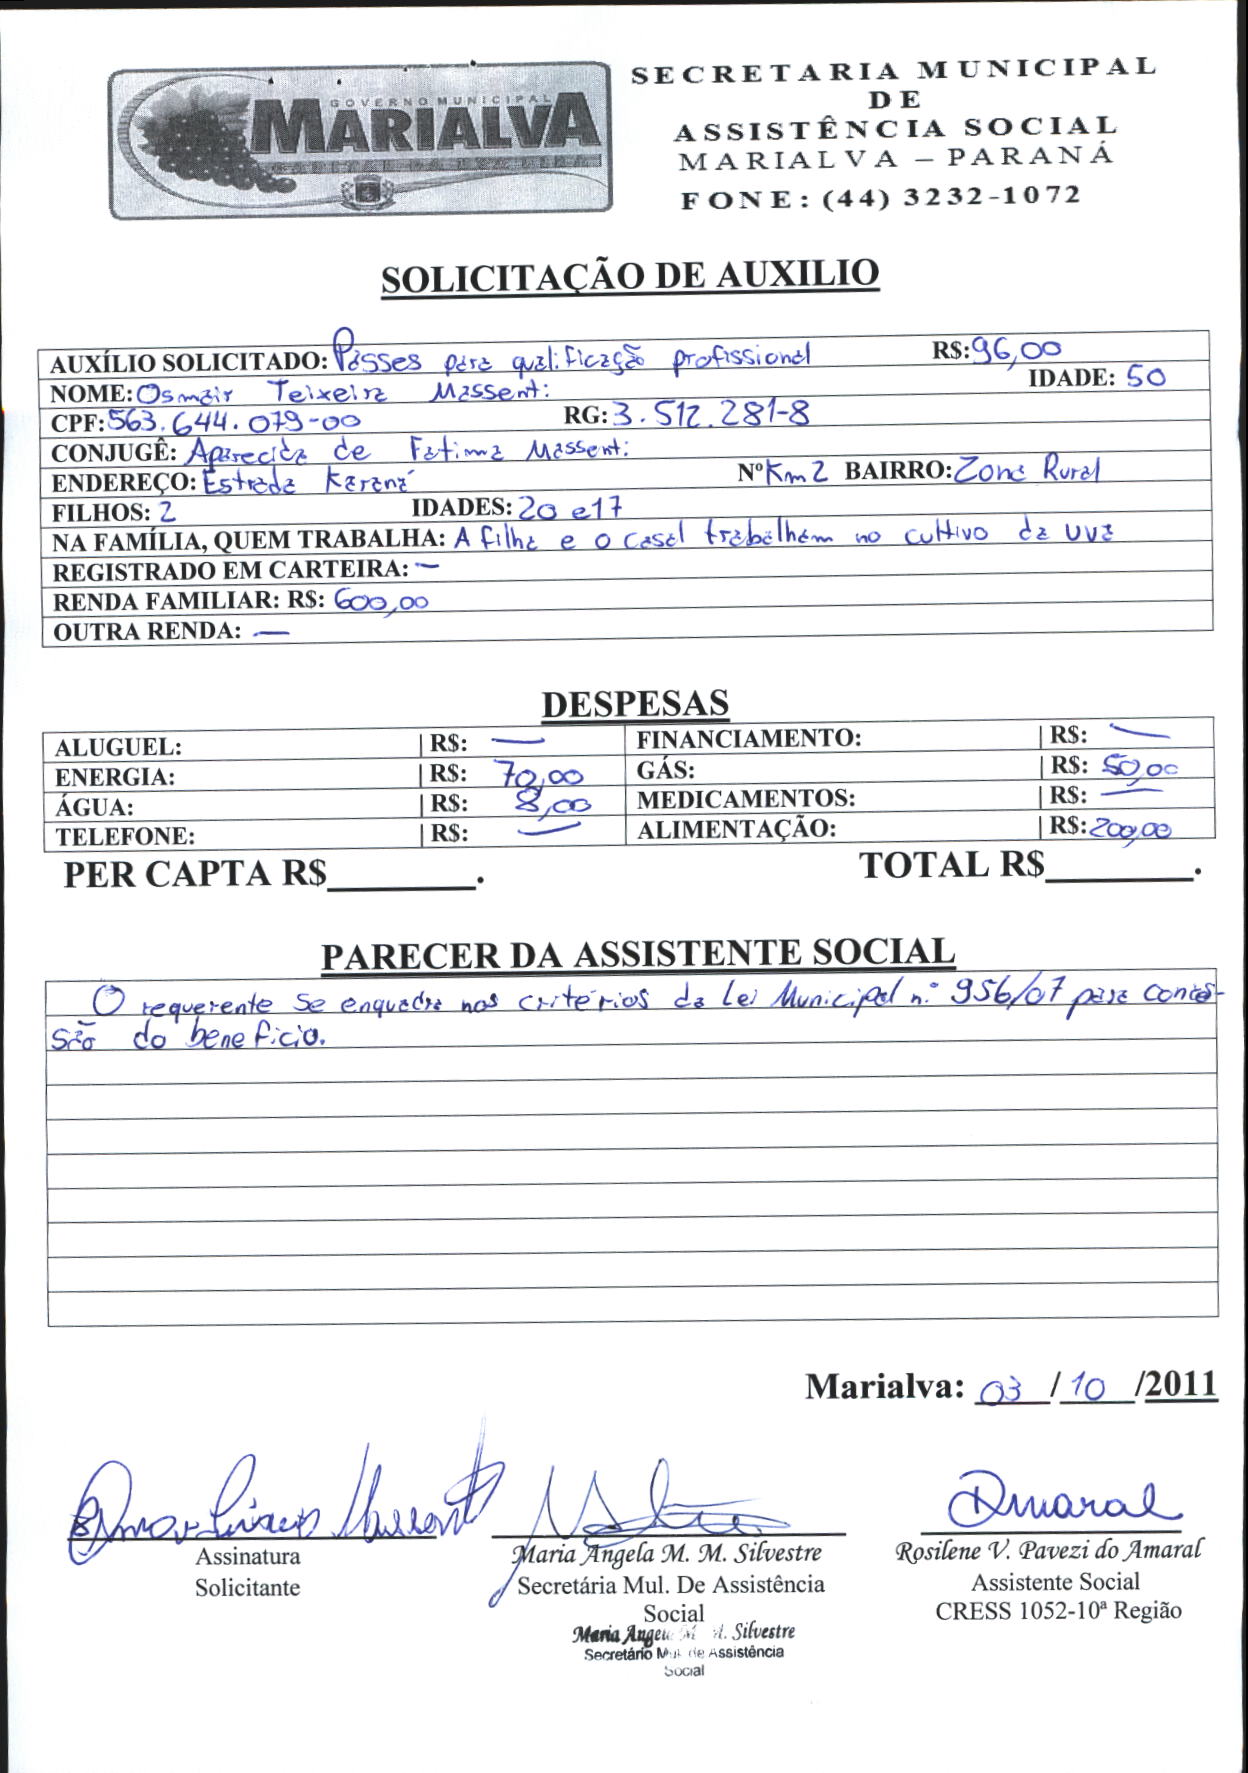 GOVERNO MUNICIPAL
MARIALVA
SECRETARIA MUNICIPAL
DE
ASSISTÊNCIA SOCIAL
MARIALVA – PARANÁ
FONE: (44) 3232-1072
SOLICITAÇÃO DE AUXILIO
AUXÍLIO SOLICITADO: Passes para qualificação profissional R$: 96,00
NOME: Osmair Teixeira Massenti IDADE: 50
CPF: 563.644.079-00 RG: 3.512.281-8
CONJUGÊ: Aparecida de Fatima Massenti
ENDEREÇO: Estrada Karaná Nº Km2 BAIRRO: Zona Rural
FILHOS: 2 IDADES: 20 e 17
NA FAMÍLIA, QUEM TRABALHA: A filha e o casal trabalham no cultivo da uva
REGISTRADO EM CARTEIRA: —
RENDA FAMILIAR: R$: 600,00
OUTRA RENDA: —
DESPESAS
ALUGUEL: | R$: — FINANCIAMENTO: | R$: —
ENERGIA: | R$: 70,00 GÁS: | R$: 50,00
ÁGUA: | R$: 8,00 MEDICAMENTOS: | R$: —
TELEFONE: | R$: — ALIMENTAÇÃO: | R$: 200,00
PER CAPTA R$________. TOTAL R$________.
PARECER DA ASSISTENTE SOCIAL
O requerente se enquadra nos critérios da Lei Municipal n.º 956/07 para conces-
são do beneficio.
Marialva: 03 / 10 /2011
Amaral
Assinatura
Solicitante
Maria Ângela M. M. Silvestre
Secretária Mul. De Assistência
Social
Maria Angela M. M. Silvestre
Secretário Mul. de Assistência
Social
Rosilene V. Pavezi do Amaral
Assistente Social
CRESS 1052-10ª Região